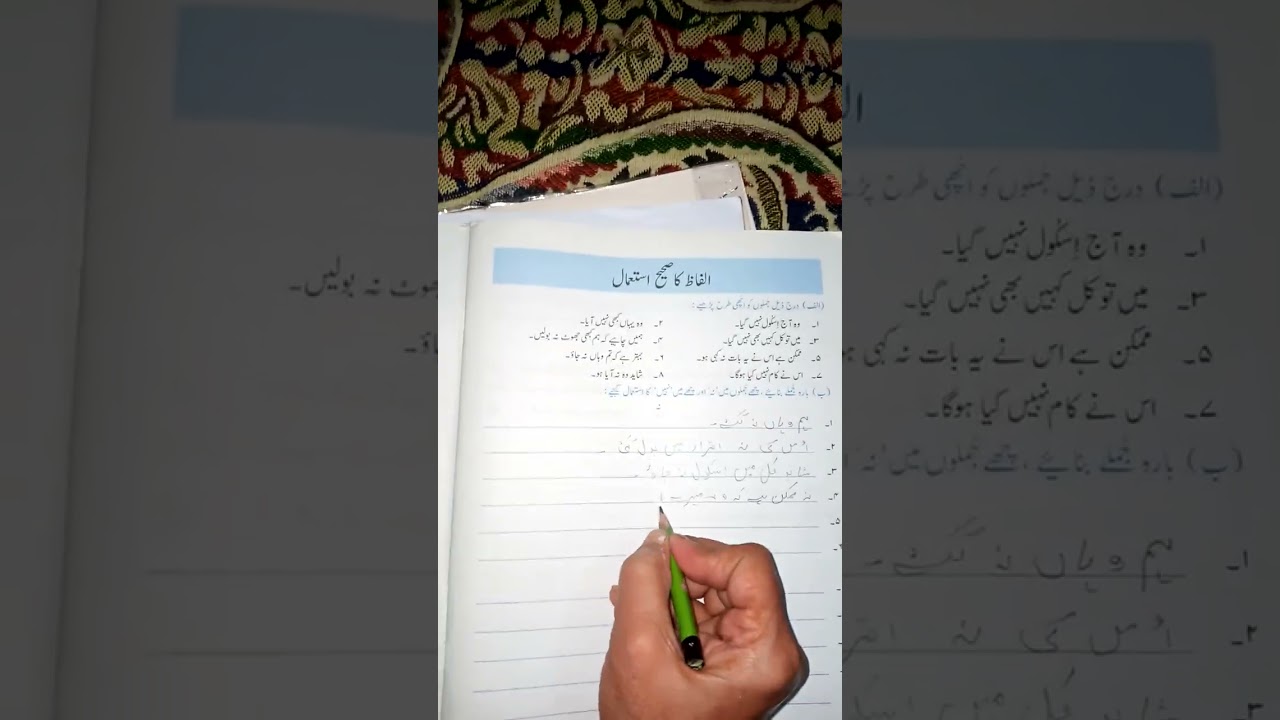 الفاظ کا صحیح استعمال
(الف) درج ذیل جملوں کو اچھی طرح پڑھیے :
۱۔ وہ آج اِسکُول نہیں گیا۔ ۲۔ وہ یہاں کبھی نہیں آیا۔
۳۔ میں تو کل کہیں بھی نہیں گیا۔ ۴۔ ہمیں چاہیے کہ ہم کبھی جھوٹ نہ بولیں۔
۵۔ ممکن ہے اس نے یہ بات نہ کہی ہو۔ ۶۔ بہتر ہے کہ تم وہاں نہ جاؤ۔
۷۔ اس نے کام نہیں کیا ہوگا۔ ۸۔ شاید وہ نہ آیا ہو۔
(ب) بارہ جملے بنائیے ، چھے جملوں میں 'نہ' اور چھے میں 'نہیں' کا استعمال کیجیے :
نہ
۱۔ ہم وہاں نہ گئے۔
۲۔ اُس کی نہ اقرار میں بدل گئی ۔
۳۔ شاید کل میں اسکول نہ جاؤں ۔
۴۔ نہ ممکن ہے کہ وہ میرے
۵۔